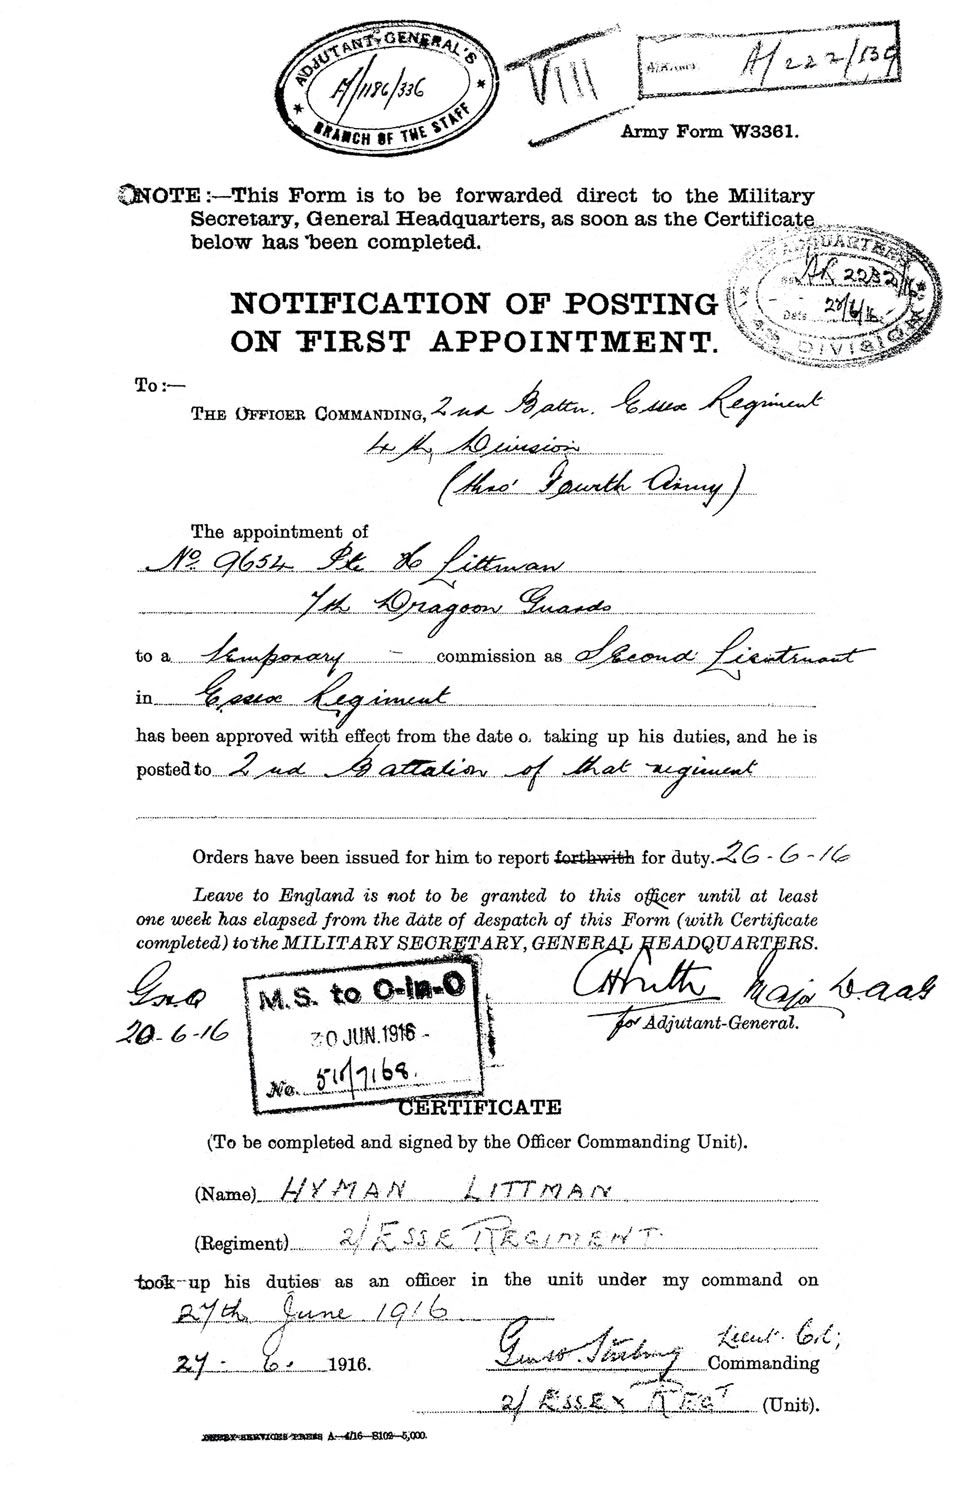 ADJUTANT-GENERAL'S
A/1186/336
BRANCH OF THE STAFF
VIII
A/222/139
Army Form W3361.
NOTE:—This Form is to be forwarded direct to the Military
Secretary, General Headquarters, as soon as the Certificate
below has been completed.
HEADQUARTERS
AR 2232/16
Date 23/6/16
DIVISION
NOTIFICATION OF POSTING
ON FIRST APPOINTMENT.
To:—
THE OFFICER COMMANDING, 2nd Battn. Essex Regiment
4th Division
(thro' Fourth Army)
The appointment of
No. 9654 Pte H Littman
7th Dragoon Guards
to a temporary - commission as Second Lieutenant
in Essex Regiment
has been approved with effect from the date o. taking up his duties, and he is
posted to 2nd Battalion of that regiment
Orders have been issued for him to report forthwith for duty. 26-6-16
Leave to England is not to be granted to this officer until at least
one week has elapsed from the date of despatch of this Form (with Certificate
completed) to the MILITARY SECRETARY, GENERAL HEADQUARTERS.
G.H.Q
20-6-16
M.S. to O-in-O
30 JUN.1916 -
No. 511/7168.
Major DAAG
for Adjutant-General.
CERTIFICATE
(To be completed and signed by the Officer Commanding Unit).
(Name) HYMAN LITTMAN
(Regiment) 2/ ESSE REGIMENT.
took up his duties as an officer in the unit under my command on
27th June 1916
27 - 6. 1916.
Stirling Lieut Col;
Commanding
2/ ESSEX REGT (Unit).
SERVICES PRESS A—4/16—S102—5,000.